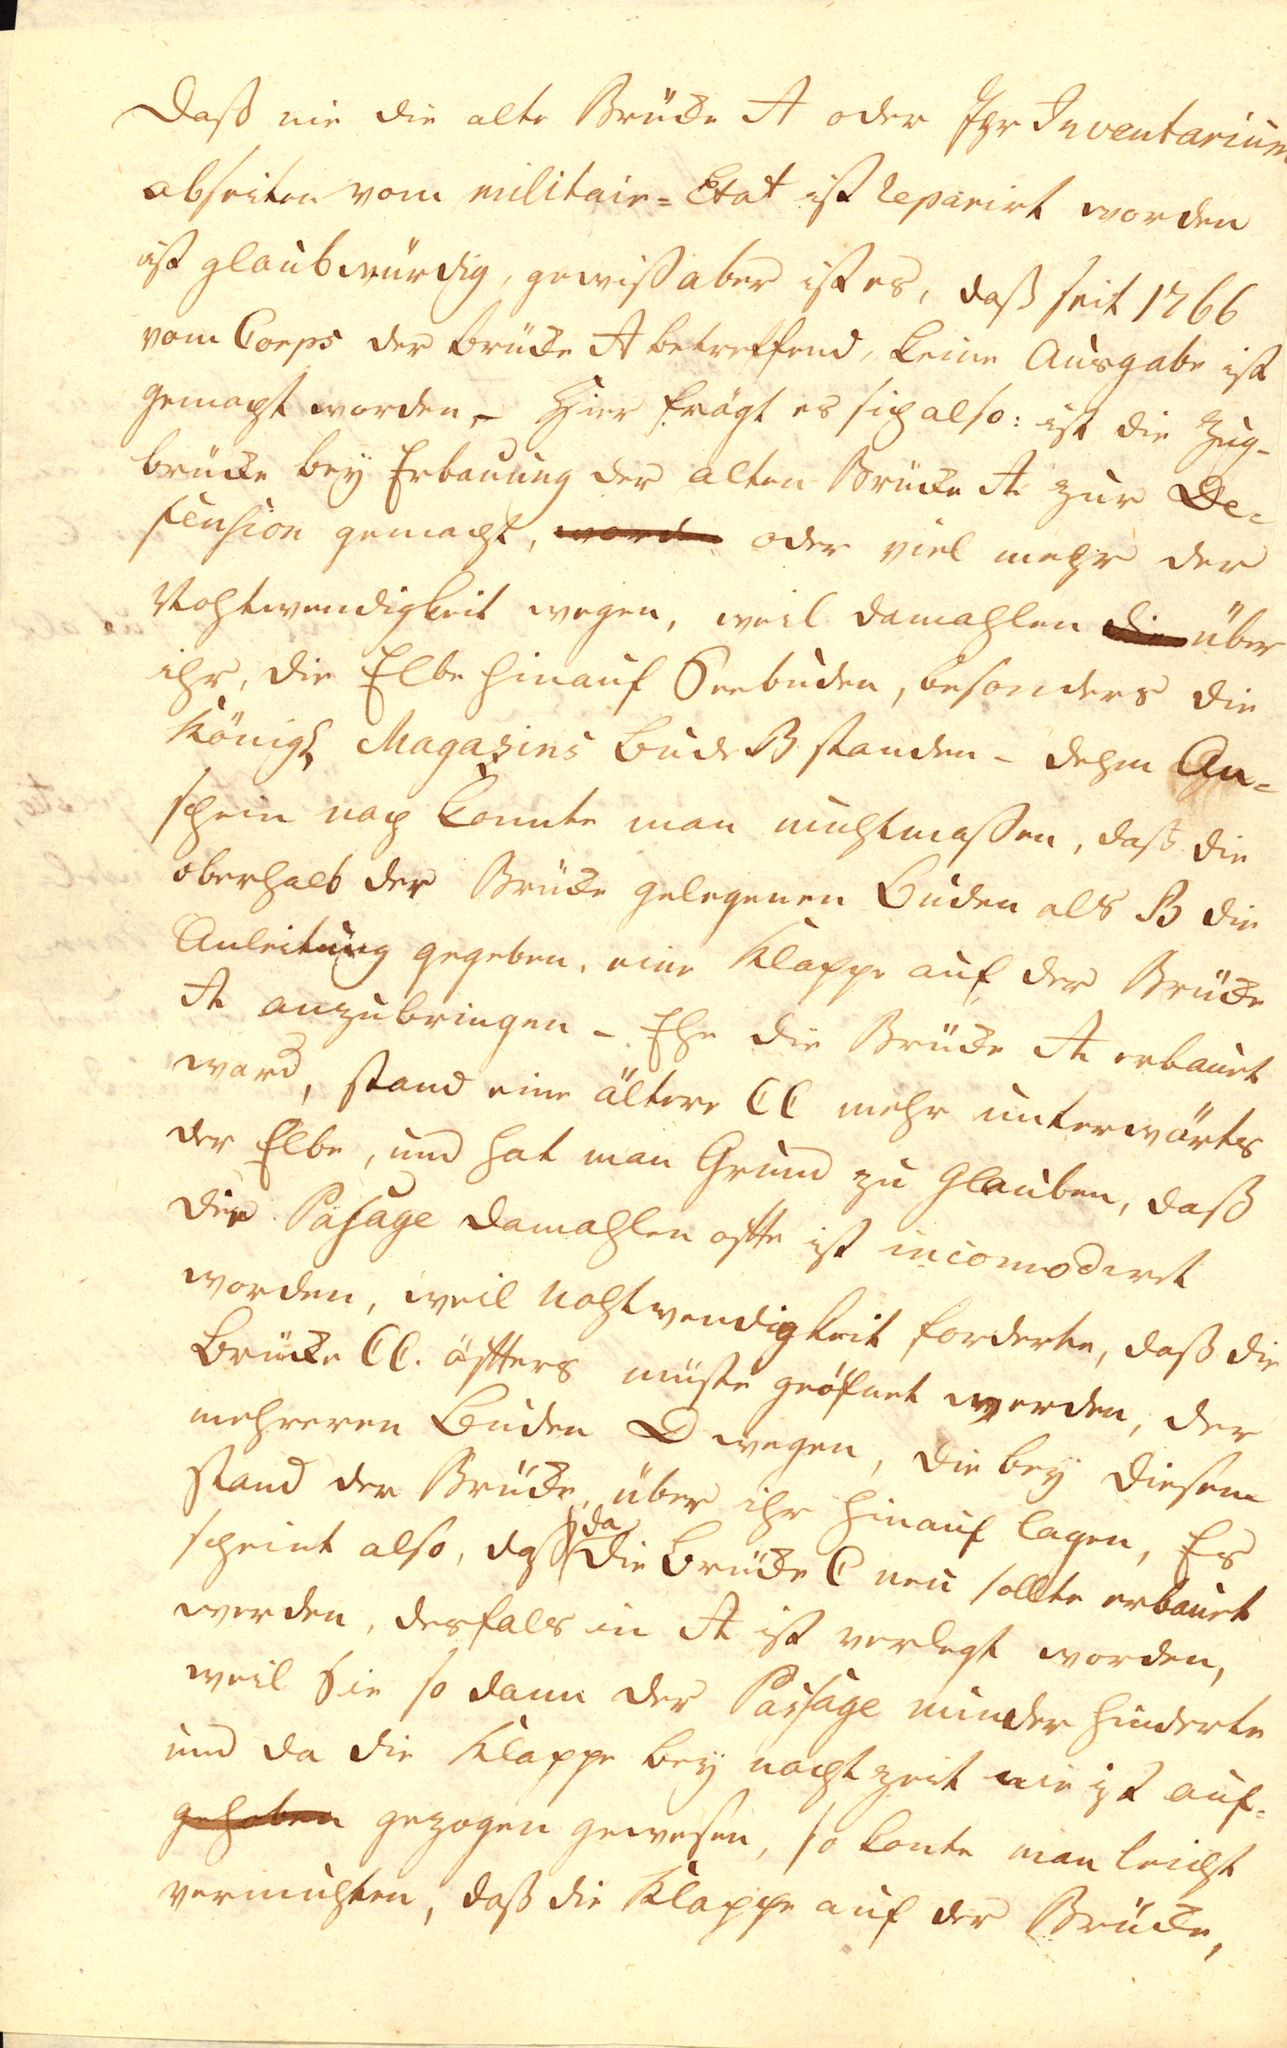 Daß nie die alte Brücke A oder Ihr Inventarium
abseiten vom militair=Etat ist reparirt worden
ist glaubwürdig, gewiß aber ist es, daß seit 1766
vom Corps der Brücke A betreffend, keine Ausgabe ist
gemacht worden – Hier frägt es sich also: ist die Zug-
brücke bey Erbauung der alten Brücke A zur De-
fension gemacht, word oder viel mehr der
Nohtwendigkeit wegen, weil damahlen die über
ihr, die Elbe hinauf Seebuden, besonders die
Königl Magazins Bude B standen – dehm An=
schein nach konnte man muhtmaßen, daß die
oberhalb der Brücke gelegenen Buden als B die
Anleitung gegeben, eine Klappe auf der Brücke
A anzubringen – Ehe die Brücke A erbauet
ward, stand eine ältere CC mehr unterwärts
der Elbe, und hat man Grund zu Glauben, daß
die Pasage damahlen offte ist incomodiret
worden, weil Nohtwendigkeit forderte, daß die
Brücke CC. öffters müste geöfnet werden, der
mehreren Buden D wegen, die bey diesem
stand der Brücke, über ihr hinauf lagen, Es
scheint also, daß da die Brücke C neu sollte erbauet
werden, desfals in A ist verlegt worden,
weil Sie so dann der Passage minder hinderte
und da die Klappe bey nacht zeit nie ist auf=
gehoben gezogen gewesen, so konte man leicht
vermuhten, daß die Klappe auf der Brücke,